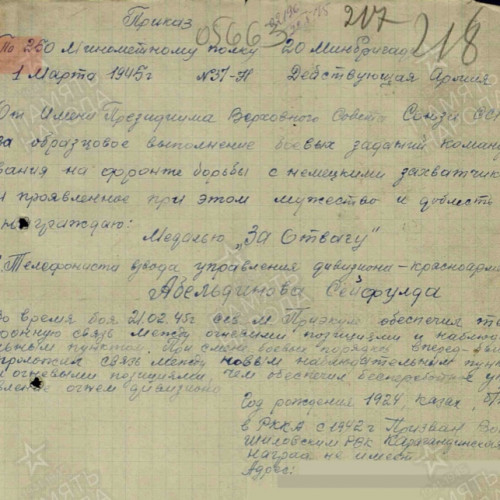 Приказ
056635
217
218
По 250 Минометному полку 20 Минбригад
1 Марта 1945г №37-Н Действующая Армия
От Имени Президиума Верховного Совета Союза ССР
За образцовое выполнение боевых заданий командо
вания на фронте борьбы с немецкими захватчика
и проявленное при этом мужество и доблесть
награждаю:
Медалью „За Отвагу"
Телефониста взвода управления дивизиона-красноарм
Абельдинова Сейфулда
Во время боя 21.02.45г Приэкули обеспечил
связь между огневыми позициями и наблюда
пунктом. При смене боевых порядков вперед
проложил связь между новым наблюдательным пунк
и огневыми позициями, чем обеспечил бесперебойное
огнем дивизиона
Год рождения 1924 казах,
в РККА с 1942г Призван Во
шиловским РВК Карагандинская
наград не имеет
Адрес: